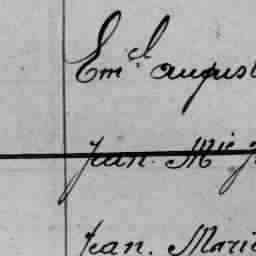 Em.el august
Jean. Mie J
Jean. Marie